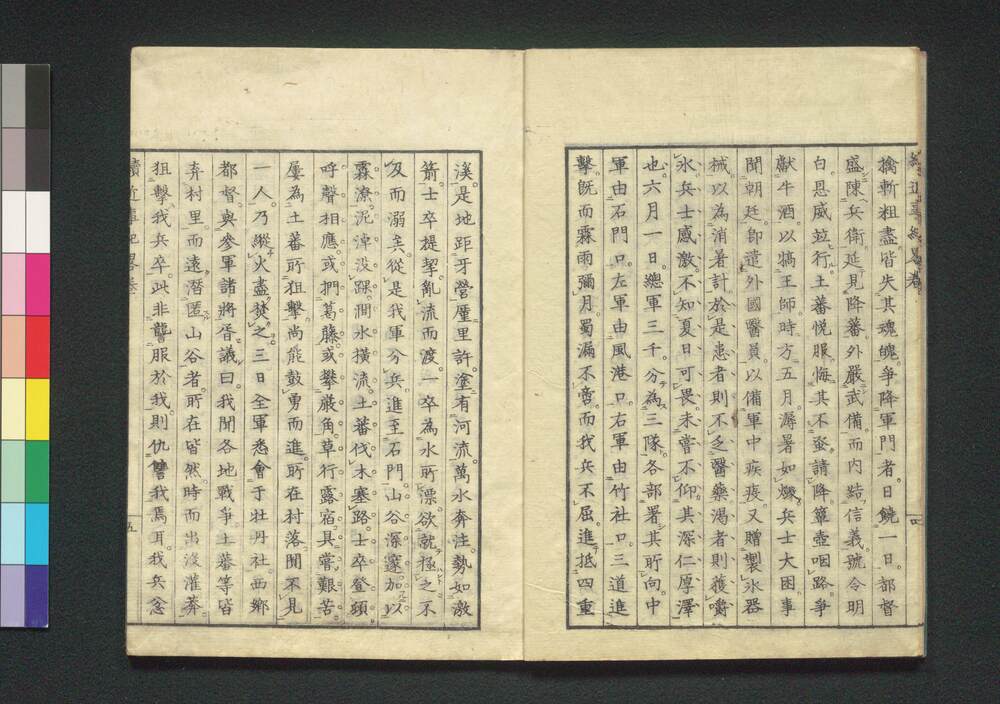 擒斬粗盡。皆失其魂魄。爭降軍門者。日饒一日。都督
盛陳兵衛。延見降蕃。外嚴武備。而內結信義。號令明
白。恩威竝行。土蕃悅服。悔其不蚤請降。簞壺咽路。爭
獻牛酒。以犒王師。時方五月。溽暑如燬。兵士大困。事
聞朝廷。卽遣外國醫員。以備軍中疾疫。又贈製氷器
械。以為消暑計。於是患者則不乏醫藥。渴者則獲嚼
氷。兵士感激。不知夏日可畏。未嘗不仰其深仁厚澤
也。六月一日。總軍三千。分為三隊。各部署其所向。中
軍由石門口。左軍由風港口。右軍由竹社口。三道進
擊。旣而霖雨彌月。蜀漏不啻。而我兵不屈。進抵四重
溪。是地距牙營厪里許。塗有河流。萬水奔注。勢如激
箭。士卒提挈。亂流而渡。一卒為水所漂。欲就極之。不
及而溺矣。從是我軍分兵。進至石門。山谷深邃。加以
霖潦。泥淖没踝。澗水橫流。土蕃伐木塞路。士卒登頓
呼聲相應。或捫葛藤。或攀巖角。草行露宿。具嘗艱苦。
屢為土蕃所狙擊。尚能鼓勇而進。所在村落。閴不見
一人。乃縱火盡焚之。三日全軍悉會于牡丹社。西鄉
都督。與參軍諸將胥議曰。我聞各地戰爭。土蕃等皆
弃村里。而遠潛匿山谷者。所在皆然。時而出沒灌莽。
狙擊我兵卒。此非讋服於我。則仇讐我焉耳。我兵念
五